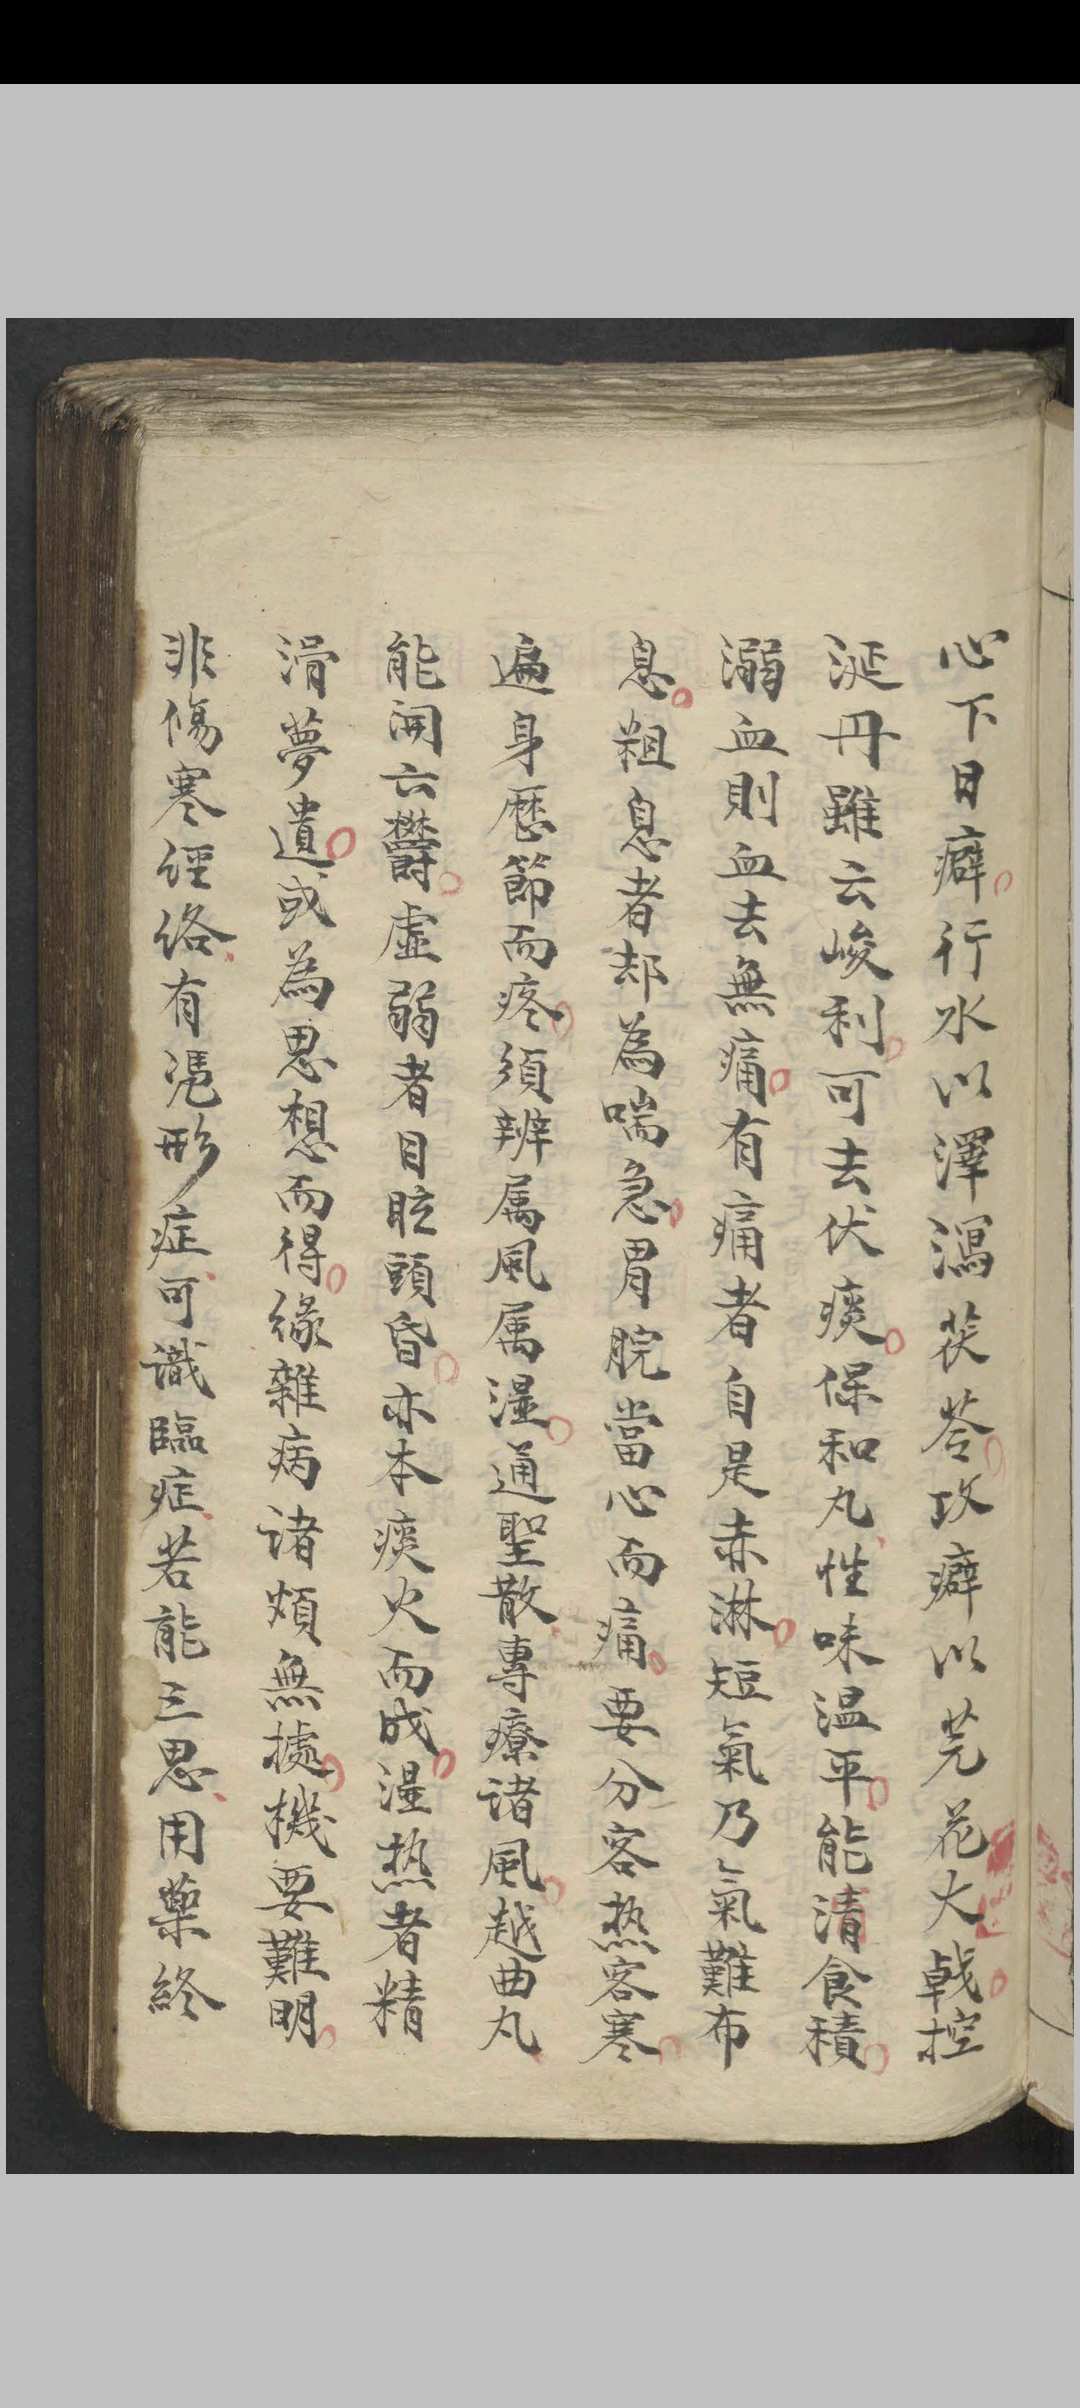 心下日癖行水以澤瀉茯苓攻癖以芫花大戟控
涎丹雖云峻利可去伏痰保和丸性味温平能清食積
溺血則血去無痛有痛者自是赤淋短氣乃氣難布
息粗息者却為喘急胃脘當心而痛要分客热客寒
遍身歷節而疼須辨属風属濕通聖散專療诸風越曲丸
能開六欝虛弱者目眩頭昏亦本痰火而成濕热者精
滑夢遺或為思想而得緣雜病诸煩無據機要難明
非傷寒经络有凴形症可識臨症若能三思用藥終